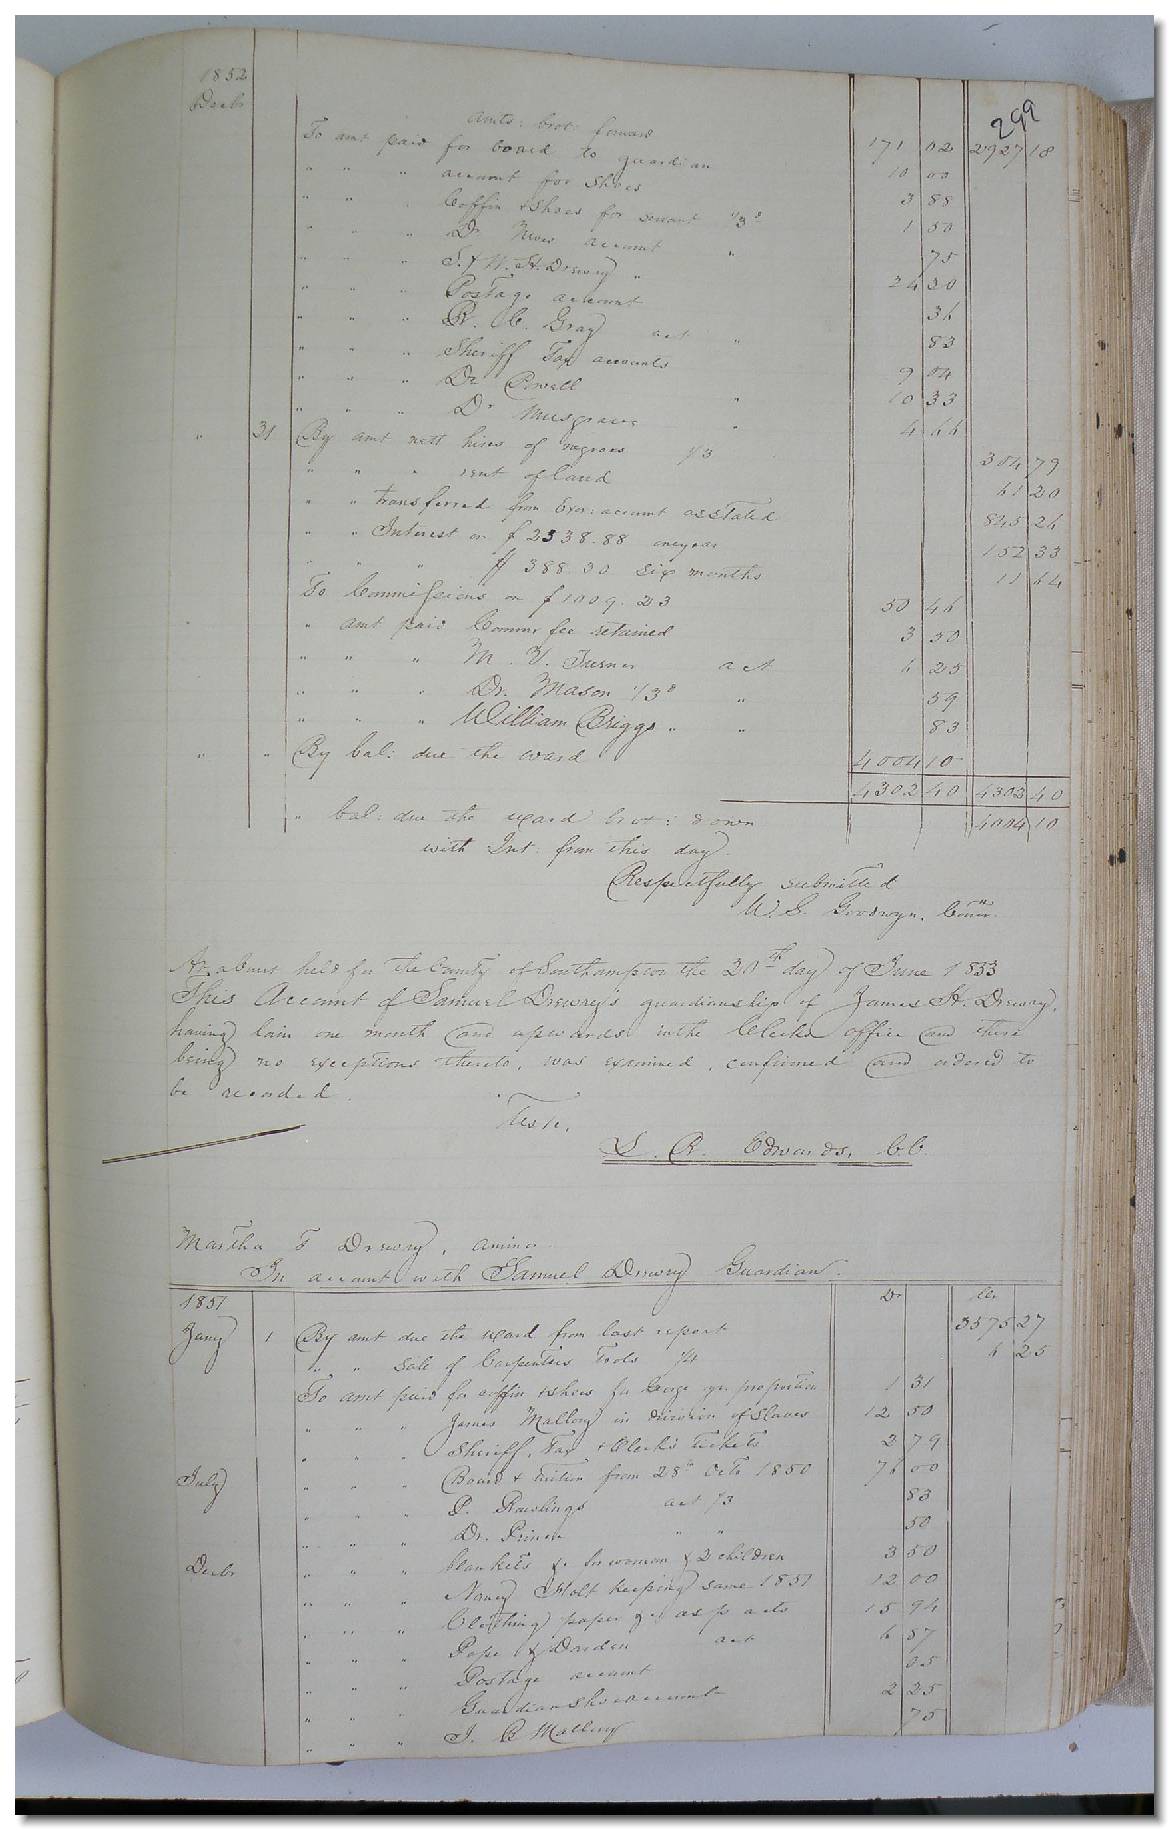 299
1852
Decbr
Amts: brot: forward 171 02 2927 18
To amt paid for board to guardian 10 00
" " " account for Shoes 3 88
" " " Coffin & Shoes for servant 1/3d 1 50
" " " Dr. account " 75
" " " S. & W. H. Drewry " 24 30
" " " Postage account 36
" " " R. C. Gray act " 83
" " " Sheriff Tax accounts 9 04
" " " Dr Powell " 10 33
" " " Dr Musgraves " 4 66
" 31 By amt nett hires of negroes 1/3 304 79
" " " rent of land 61 20
" " transferred from Exor: account as stated 845 26
" " Interest on $2538.88 one year 152 33
" " " $388.30 six months 11 64
To Commissions on $1009.23 50 46
" amt paid Commr fee retained 3 50
" " " M. Y. Turner act 6 25
" " " Dr. Mason 1/3d " 59
" " " William Briggs " " 83
" " By bal: due the ward 4004 10
4302 40 4302 40
" bal: due the ward brot: down 4004 10
with Int: from this day.
Respectfully submitted
W. S. Goodwyn, Commr.
At a Court held for the County of Southampton the 20th day of June 1853
This Account of Samuel Drewry's guardianship of James H. Drewry,
having lain one month and upwards in the Clerks office and there
being no exceptions thereto, was examined, confirmed and ordered to
be recorded.
Teste,
L. R. Edwards, C.C.
Martha F Drewry, a minor
In account with Samuel Drewry Guardian.
1851 Dr Cr
Jany 1 By amt due the ward from last report 3575 27
" " Sale of Carpenters Tools 1/4 6 25
To amt paid for coffin & shoes for George yr proportion 1 31
" " " James Mallory in division of Slaves 12 50
" " " Sheriff, Tax & Clerk's tickets 2 79
July " " " Board & tuition from 28th Octr 1850 76 00
" " " P. Rawlings act 1/3 83
" " " Dr. Prince " " 50
Decbr " " " blankets &c for woman & 2 children 3 50
" " " Nancy Holt keeping same 1851 12 00
" " " Clothing paper &c as pr acts 15 94
" " " Pope & Darden act 6 87
" " " Postage account 05
" " " Guardian Shoe account 2 25
" " " J. B Mallory 75